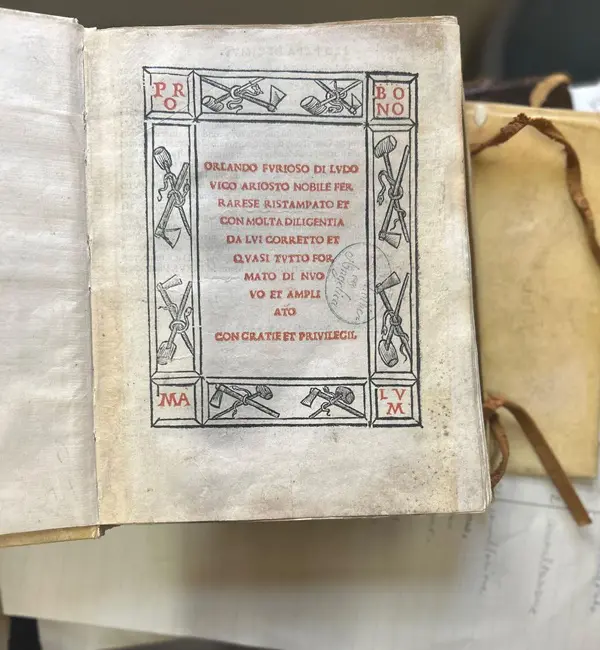 PR
O
BO
NO
ORLANDO FVRIOSO DI LVDO
VICO ARIOSTO NOBILE FER
RARESE RISTAMPATO ET
CON MOLTA DILIGENTIA
DA LVI CORRETTO ET
QVASI TVTTO FOR
MATO DI NVO
VO ET AMPLI
ATO
CON GRATIE ET PRIVILEGII.
MA
LV
M